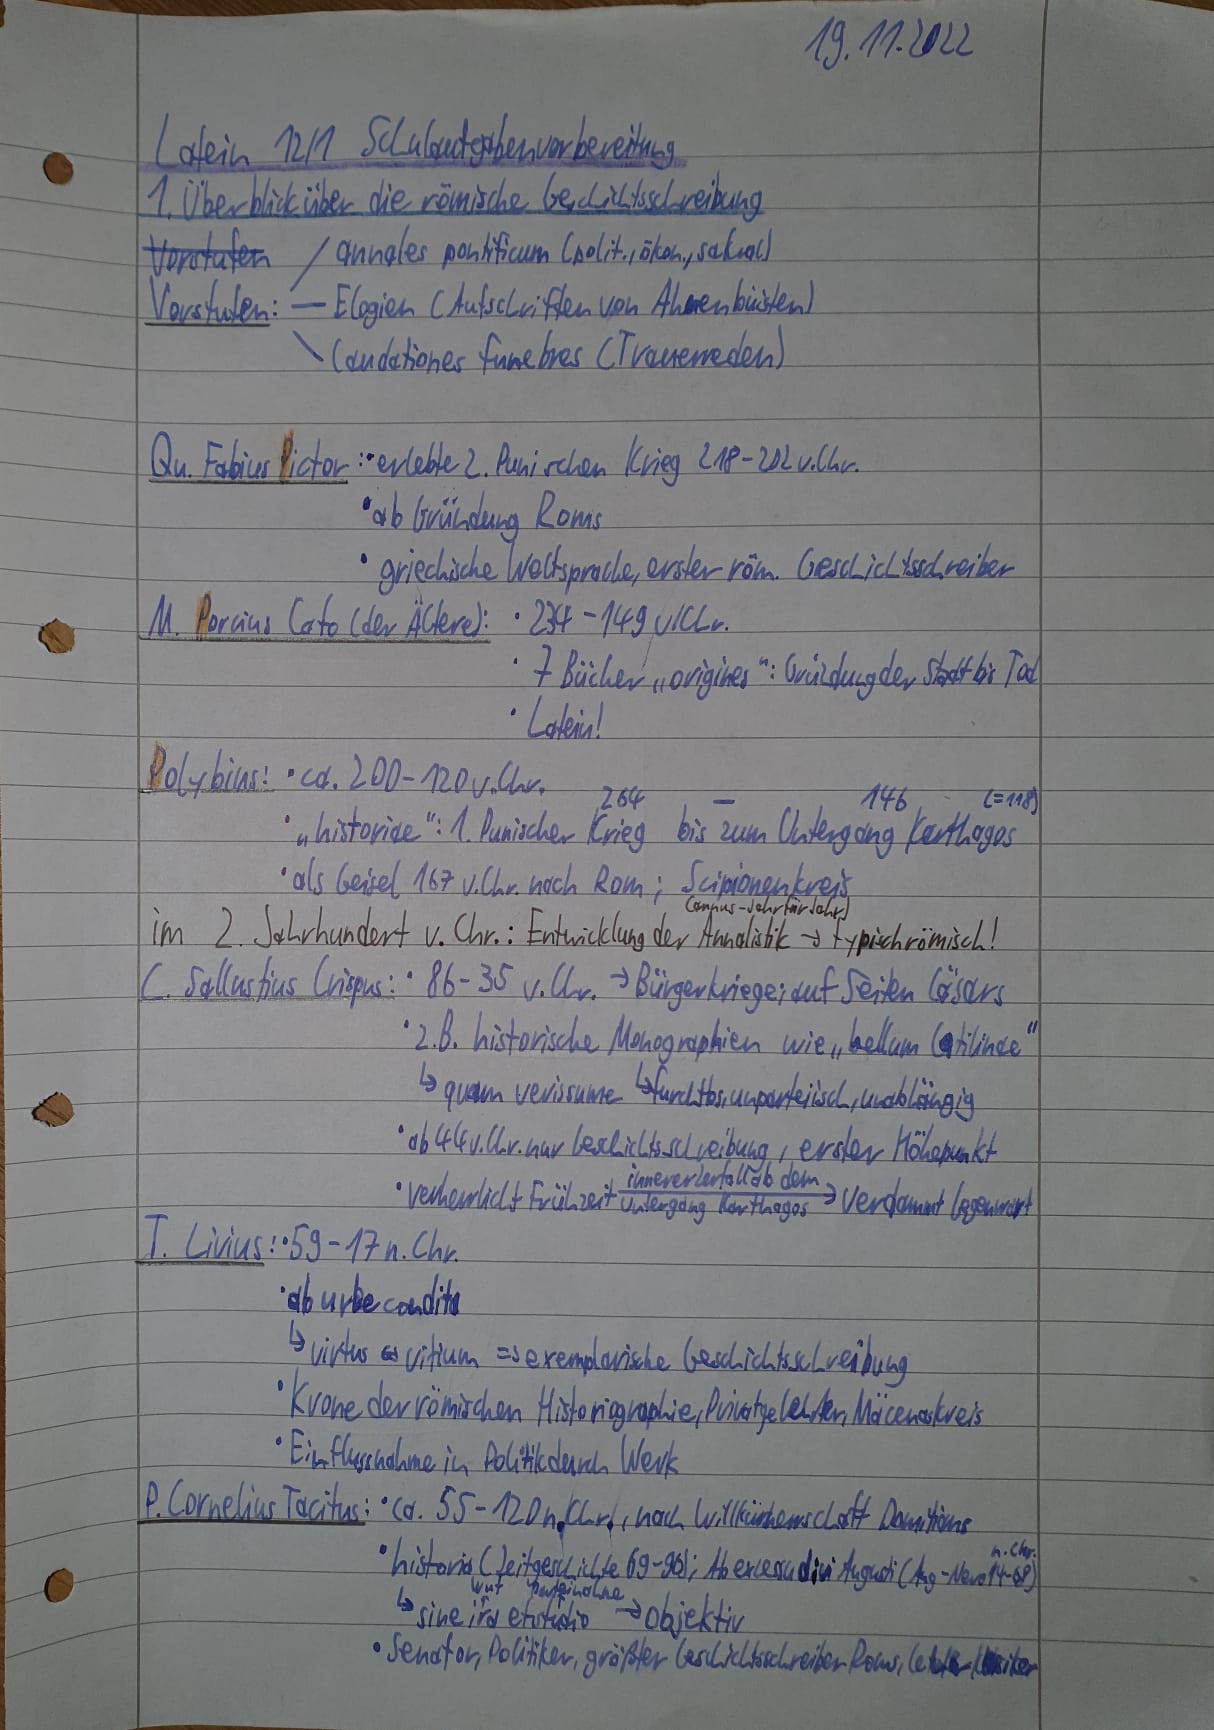 19.11.2022
Latein 12/1 Schulaufgabenvorbereitung
1. Überblick über die römische Geschichtsschreibung
Vorstufen / annales pontificum (polit., ökon., sakral)
Vorstufen: — Elogien (Aufschriften von Ahnenbüsten)
\ Laudationes funebres (Trauerreden)
Qu. Fabius Pictor: • erlebte 2. Punischen Krieg 218-202 v. Chr.
• ab Gründung Roms
• griechische Weltsprache, erster röm. Geschichtsschreiber
M. Porcius Cato (der Ältere): • 234-149 v. Chr.
• 7 Bücher „origines": Gründung der Stadt bis Tod
• Latein!
Polybius: • ca. 200-120 v. Chr.
264 — 146 (=118)
• „historiae": 1. Punischer Krieg bis zum Untergang Karthagos
• als Geisel 167 v. Chr. nach Rom; Scipionenkreis
(annus-Jahr für Jahr)
im 2. Jahrhundert v. Chr.: Entwicklung der Annalistik → typisch römisch!
C. Sallustius Crispus: • 86-35 v. Chr. → Bürgerkriege; auf Seiten Cäsars
• z.B. historische Monographien wie „bellum Catilinae"
↳ quam verissume ↳ furchtlos, unparteiisch, unabhängig
• ab 44 v. Chr. nur Geschichtsschreibung, erster Höhepunkt
• verherrlicht Frühzeit innerer Verfall ab dem Untergang Karthagos → verdammt Gegenwart
T. Livius: • 59-17 n. Chr.
• ab urbe condita
↳ virtus ⇔ vitium => exemplarische Geschichtsschreibung
• Krone der römischen Historiographie, Privatgelehrter, Mäcenaskreis
• Einflussnahme in Politik durch Werk
P. Cornelius Tacitus: • ca. 55-120 n. Chr., nach Willkürherrschaft Domitians
n. Chr.
• historia (Zeitgeschichte 69-96); Ab excessu divi Augusti (Aug-Nero 14-68)
Wut Parteinahme
↳ sine ira et studio → objektiv
• Senator, Politiker, größter Geschichtsschreiber Roms, letzter